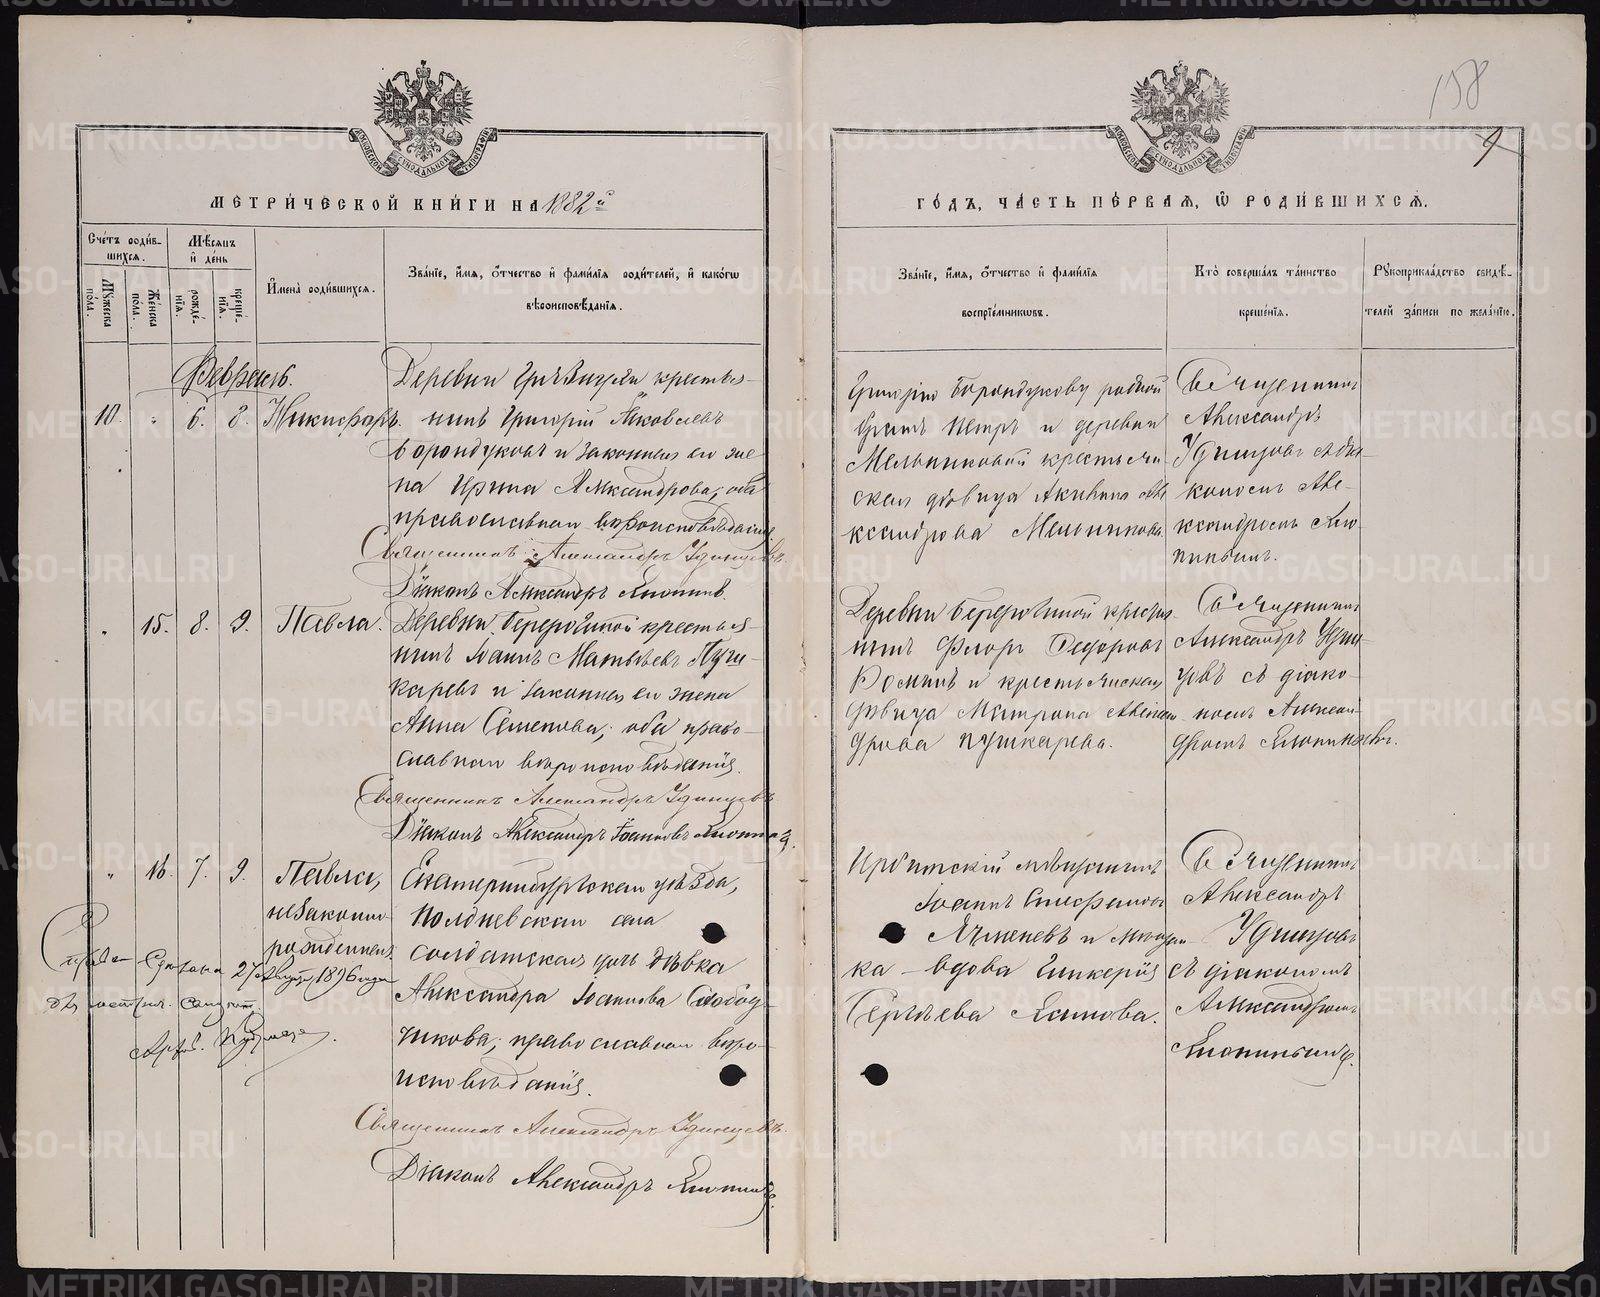 158
9
МЕТРИ́ЧЕСКОЙ КНИ́ГИ НА 1882й
ГО́ДЪ, ЧА́СТЬ ПЕ́РВАЯ, Ѡ҆ РОДИ́ВШИХСѦ.
Сче́тъ роди́в-
шихсѧ.
Мꙋ́жеска по́ла.
Же́нска по́ла.
Мѣ́сѧцъ и҆ де́нь
рожде́-нїѧ.
креще́-нїѧ.
И҆мена̀ роди́вшихсѧ.
Зва́нїе, и҆́мѧ, ѻ҆́тчество и҆ фами́лїѧ роди́телей, и҆ како́гѡ
вѣроисповѣ́данїѧ.
Зва́нїе, и҆́мѧ, ѻ҆́тчество и҆ фами́лїѧ
воспрїе́мникѡвъ.
Кто̀ соверша́лъ та́инство
креще́нїѧ.
Рꙋкоприкла́дство свидѣ́-
телей за́писи по жела́нїю.
Февраль.
10. " 6. 8. Никифоръ.
Деревни крестья-
нинъ Григорій Яковлевъ
Борондуковъ и законная его же-
на Ирина Александрова; оба
православнаго вѣроисповѣданія.
Священникъ Александръ Удинцевъ.
Діаконъ Александръ
Григорію Борондукову родной
братъ Петръ и деревни
Мельниковой крестьян-
ская дѣвица Акилина Але-
ксандрова Мельникова.
Священникъ
Александръ
Удинцовъ съ діа-
кономъ Але-
ксандромъ
" 15. 8. 9. Павла.
Деревни крестья-
нинъ Іоаннъ Матвѣевъ Пуш-
каревъ и законная его жена
Анна Семенова; оба право-
славнаго вѣроисповѣданія.
Священникъ Александръ Удинцевъ
Діаконъ Александръ Іоанновъ
Деревни крестья-
нинъ Флоръ Ѳедоровъ
и крестьянская
дѣвица Матрона Алексан-
дрова Пушкарева.
Священникъ
Александръ Удин-
цовъ съ діако-
номъ Алексан-
дромъ
" 16. 7. 9. Павла,
незаконно-
рожденная.
Екатеринбургскаго уѣзда,
Полдневскаго села
солдатская дочь дѣвка
Александра Іоаннова Слобод-
чикова; православнаго вѣро-
исповѣданія.
Священникъ Александръ Удинцевъ.
Діаконъ Александръ
Ирбитскій мѣщанинъ
Іоаннъ Стефановъ
Ячменевъ и мѣщан-
ка – вдова Гликерія
Сергѣева
Священникъ
Александръ
Удинцовъ
съ діакономъ
Александромъ
27 Август. 1896 года